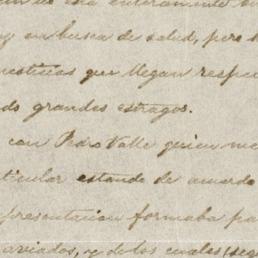 está enteramente
en busca de salud, pero
noticias que llegan respec
do grandes estragos.
con Pedro Valle quien me
ticular estando de acuerdo
presentacion formaba pa
aviados, y de los cuales (seg